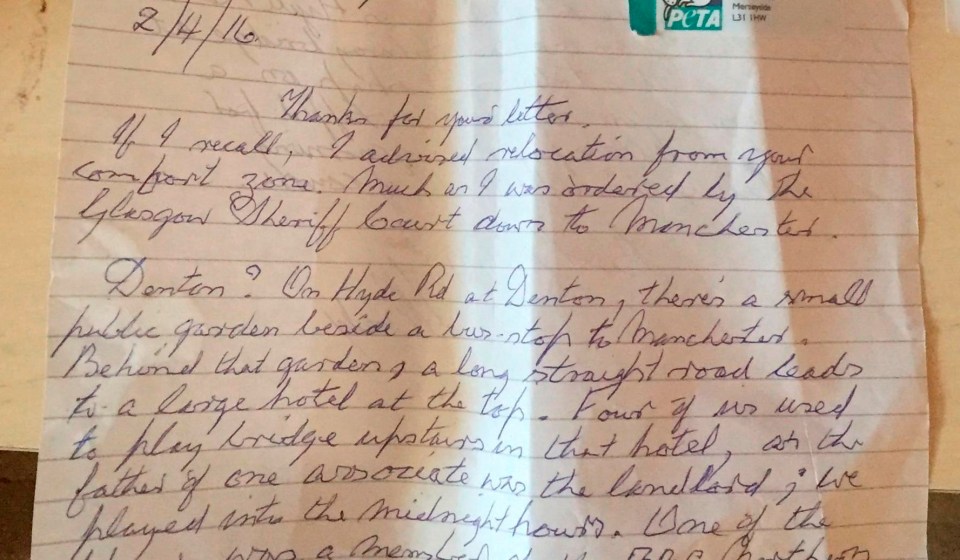 PeTA
Merseyside
L31 1HW
2/4/16
Thanks for your letter.
If I recall, I advised relocation from your
comfort zone. Much as I was ordered by the
Glasgow Sheriff Court down to Manchester.
Denton? On Hyde Rd at Denton, there's a small
public garden beside a bus-stop to Manchester.
Behind that garden, a long straight road leads
to a large hotel at the top. Four of us used
to play bridge upstairs in that hotel, as the
father of one associate was the landlord; we
played into the midnight hours. One of the
was a member